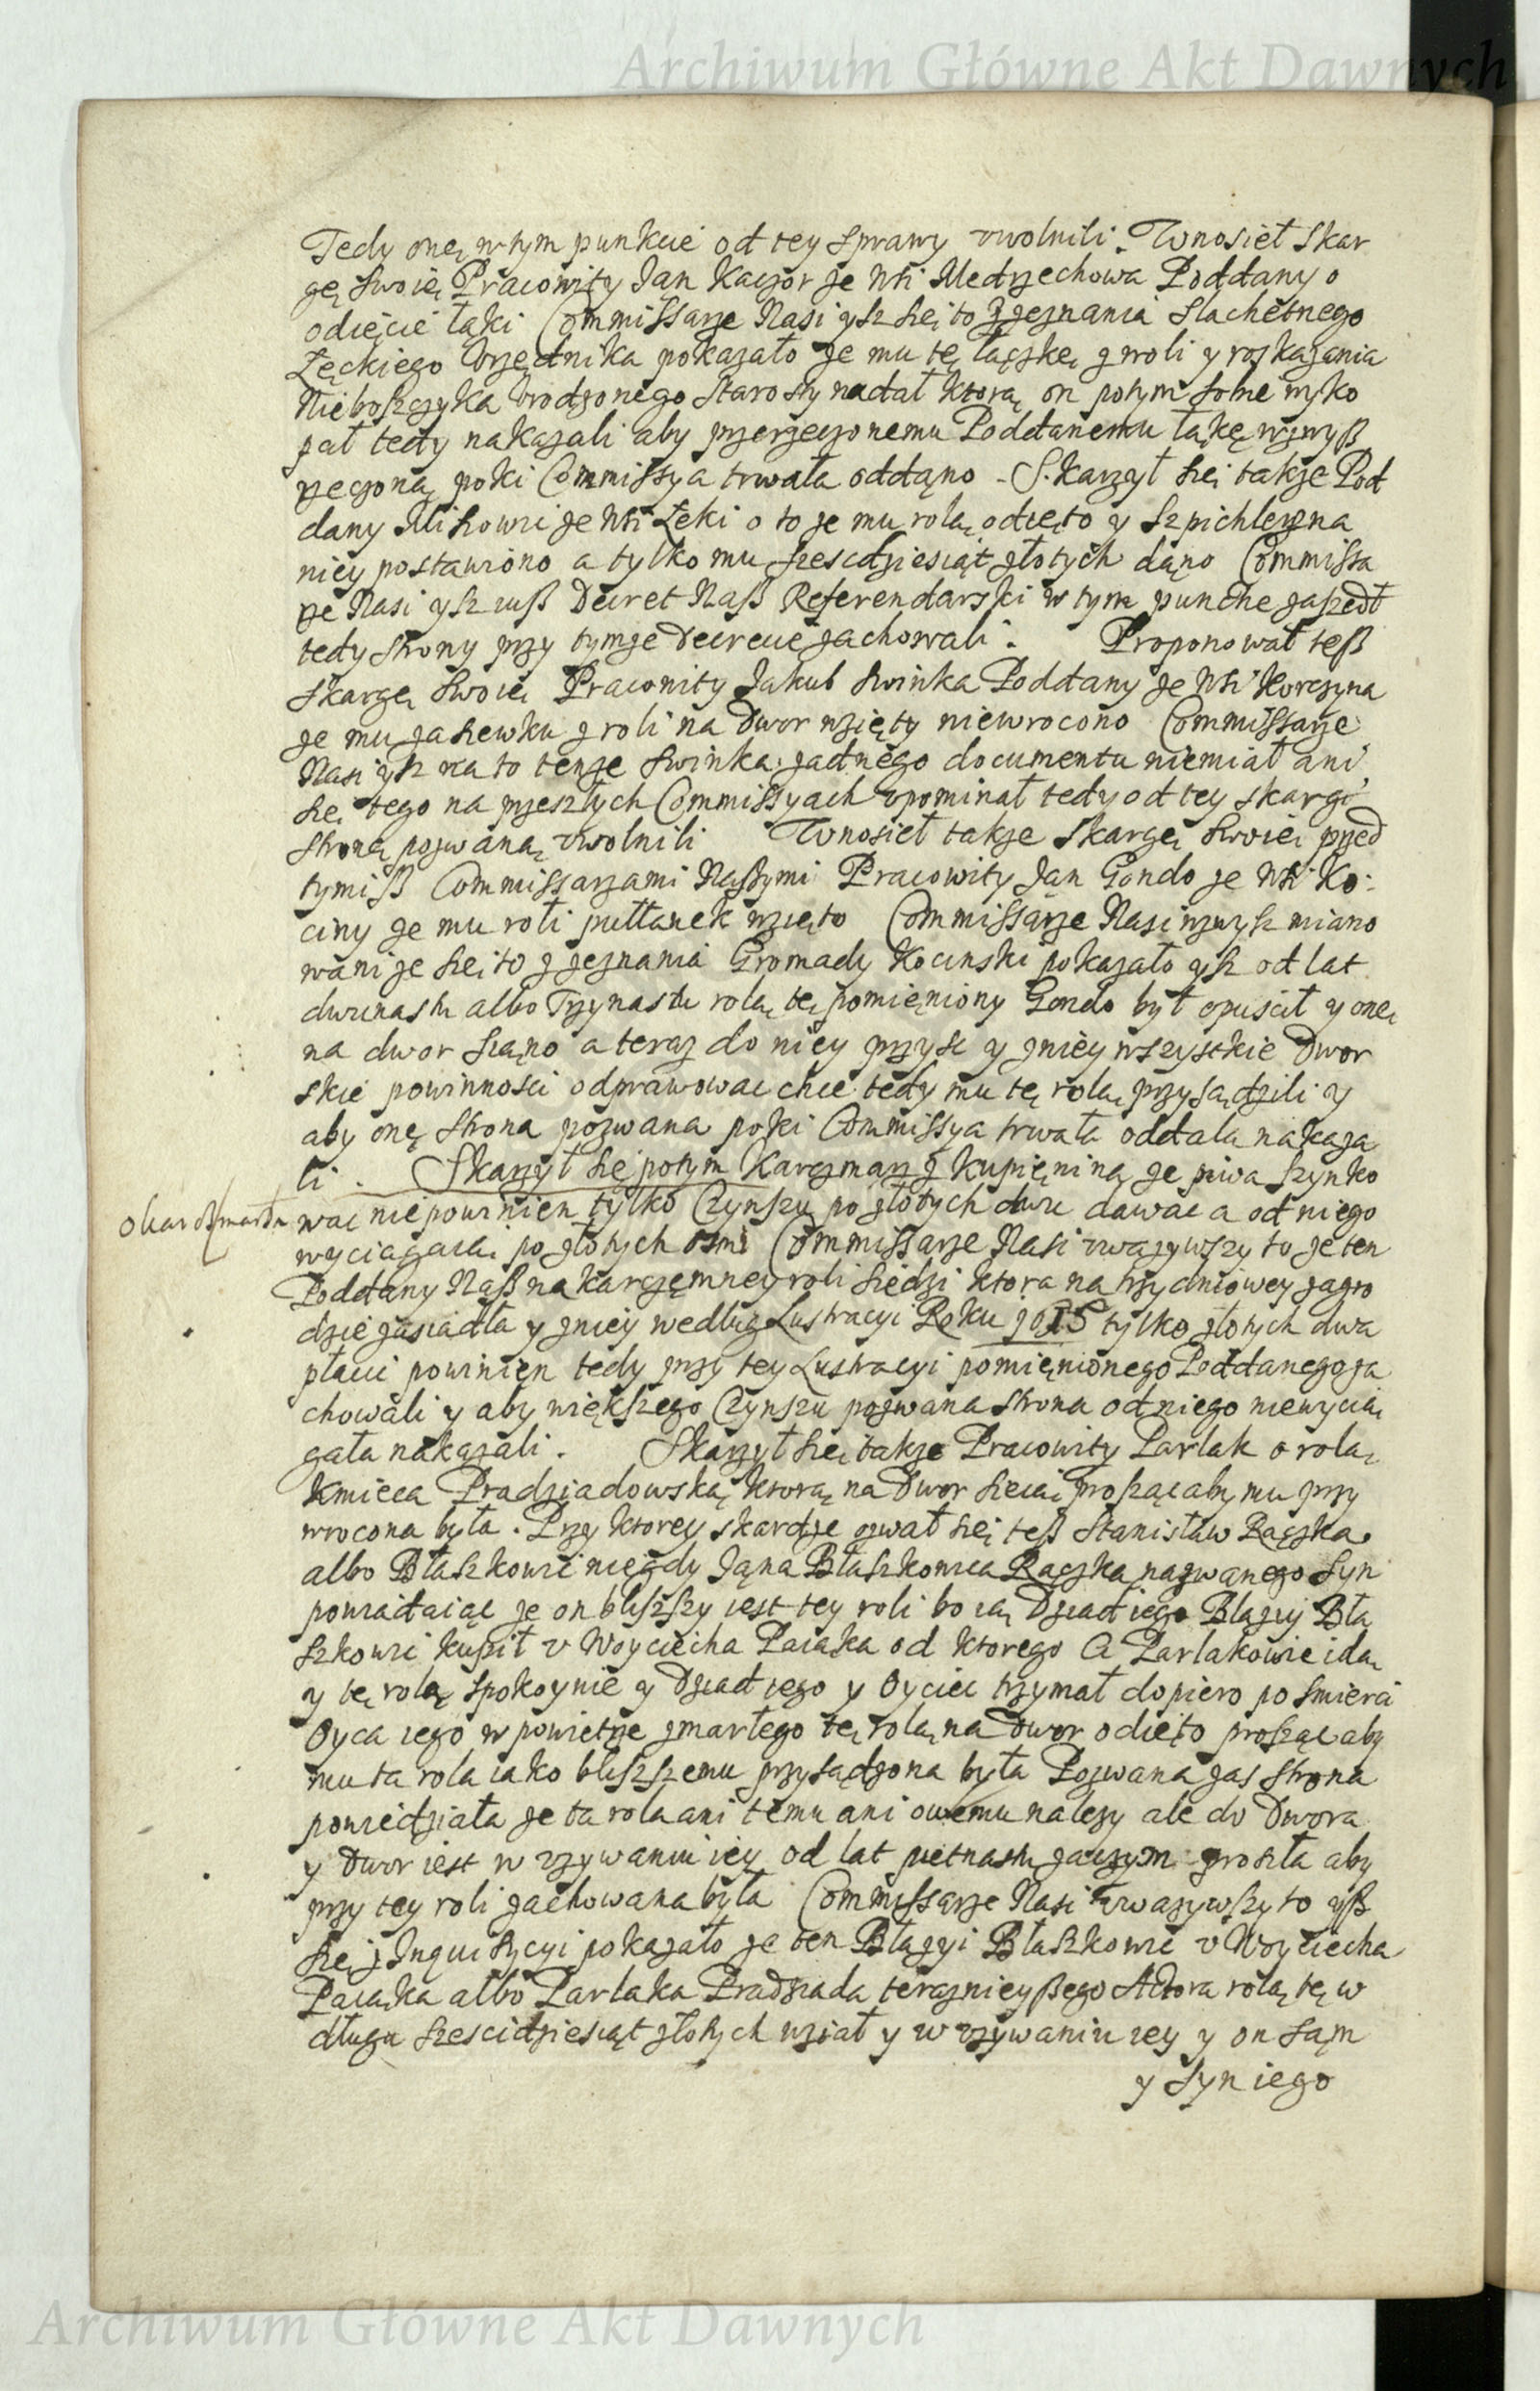 Archiwum Główne Akt Dawnych
Tedy onę w tym punkcie od tey sprawy vwolnili. Wnosieł Skar
gę swoię Pracowity Jan Kaczor ze Wsi Medrzechowa Poddany o
odięcie łąki Commissarze Nasi ysz się to z zeznania Slachetnego
Łęckiego Vrzędnika pokazało że mu tę łączkę z woli y roskazania
Nieboszczyka Vrodzonego Starosty nadał ktorą on potym sobie wyko
pał tedy nakazali aby przerzeczonemu Poddanemu łąkę wzwyß
rzeczoną poki Commissya trwała oddąno - Skarzył się także Pod
dany Misiowic ze Wsi Łęki o to że mu rolą odięto y szpichlerz na
niey postawiono a tylko mu szescdziesiąt złotych dąno Commissa
rze Nasi ysz iuß Decret Naß Referendarski w tym punckcie zaszedł
tedy strony przy tymże Decrecie zachowali. Proponował teß
skargę swoię Pracowity Jakub Swinka Poddany ze Wsi Korczyna
że mu zasiewku z roli na Dwor wzięty niewrocono Commissarze
Nasi ysz na to tenże Swinka żadnego documentu niemiał ani
się tego na przeszłych Commissyach vpominał tedy od tey skargi
stronę pozwaną vwolnili Wnosieł także skargę swoię przed
tymiß Commissarzami Naszymi Pracowity Ján Gondo ze Wsi Ko-
ciny że mu roli pułłanek wzięto Commissarze Nasi wzwysz miano
wani że się to z zeznania Gromady Kocinski pokazało ysz od lat
dwunastu albo Trzynastu rolą tę pomięniony Gondo był opuscił y onę
na dwor siąno a teraz do niey przysc y zniey wszystkie Dwor
skie powinnosci odprawowac chce tedy mu tę rolą przysądzili y
aby onę strona pozwana poki Commissya trwała oddała nakaza
li. Skarzył się potym Karczmarz z Kupięnina że piwa szynko
wac nie powinien tylko Czynszu po złotych dwu dawac a od niego
wyciągaią po złotych osmi Commissarze Nasi vwazywszy to że ten
Poddany Naß na karczemney roli siedzi ktora na trzydniowey zagro
dzie zasiadła y zniey według Lustracyi Roku 1615 tylko złotych dwa
płacic powinien tedy przy tey Lustracyi pomięnionego Poddanego za
chowali y aby większego Czynszu pozwana strona od niego niewycią
gała nakazali. Skarzył się także Pracowity Parlak o rolą
kmiecą Pradziadowską ktorą na Dwor sieią prosząc aby mu przy
wrocona była. Przy ktorey skardze ozwał się teß Stanisław Rączka
albo Błaszkowic niegdy Jąna Błaszkowica Rączka nazwanego syn
powiadaiąc że on bliższy iest tey roli bo ią Dziad iego Błazey Bła
szkowic kupił v Woyciecha Paiaka od ktorego Ci Parlakowie idą
y tę rolą spokoynie y Dziad iego y Oyciec trzymał dopiero po smierci
Oyca iego w powietrze zmarłego tę rolą na Dwor odięto prosząc aby
mu ta rola iako bliższemu przysądzona była Pozwana zas strona
powiedziała że ta rola ani temu ani owemu nalezy ale do Dwora
y Dwor iest w vzywaniu iey od lat pietnastu zaczym prosiła aby
przy tey roli zachowana była Commissarze Nasi vwazywszy to yß
się z Inquisicyi pokazało że ten Błazyi Błaszkowic v Woyciecha
Paiąka albo Parlaka Pradziada teraznieyßego Aktora rolą tę w
długu szescidziesiąt złotych wział y w vzywaniu iey y on sąm
y syn iego
Archiwum Główne Akt Dawnych